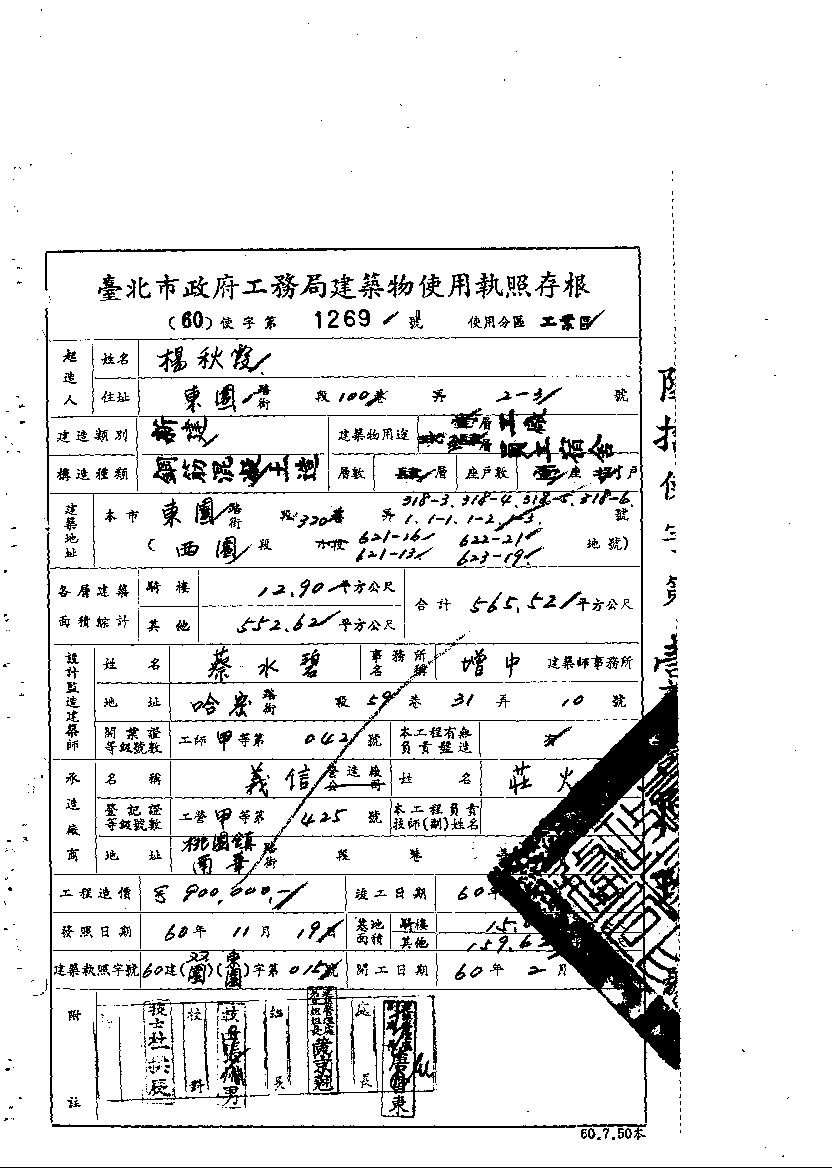 臺北市政府工務局建築物使用執照存根
(60)使字第 1269 號 使用分區 工業區
起造人 姓名 楊秋霞
住址 東園 路街 段 100 巷 弄 2-3 號
建造類別 新建 建築物用途 層工廠
層員工宿舍
構造種類 鋼筋混凝土造 層數 層 座戶數 座 戶
建築地址 本市 東園 路街 段 320 巷 弄 318-3. 318-4. 318-5. 318-6. 號
1. 1-1. 1-2. 1-3.
(西園 段 小段 621-16 622-21 地號)
621-13 623-19
各層建築面積綜計 騎樓 12.90 平方公尺 合計 565.52 平方公尺
其他 552.62 平方公尺
設計監造建築師 姓名 蔡水碧 事務所名稱 增中 建築師事務所
地址 哈密 路街 段 59 巷 31 弄 10 號
開業證等級號數 工師 甲 等第 042 號 本工程有無負責監造 有
承造廠商 名稱 義信 營造廠公司 姓名 莊火
登記證等級號數 工營 甲 等第 425 號 本工程負責技師(副)姓名
地址 桃園鎮南華 路街 段 巷
工程造價 900,000.- 竣工日期 60年
發照日期 60年 11月 19日 基地面積 騎樓 15.
其他 159.62
建築執照字號 60建(雙園)(東園)字第 015 號 開工日期 60年 2月
附註 校對 組長 處長
60.7.50本